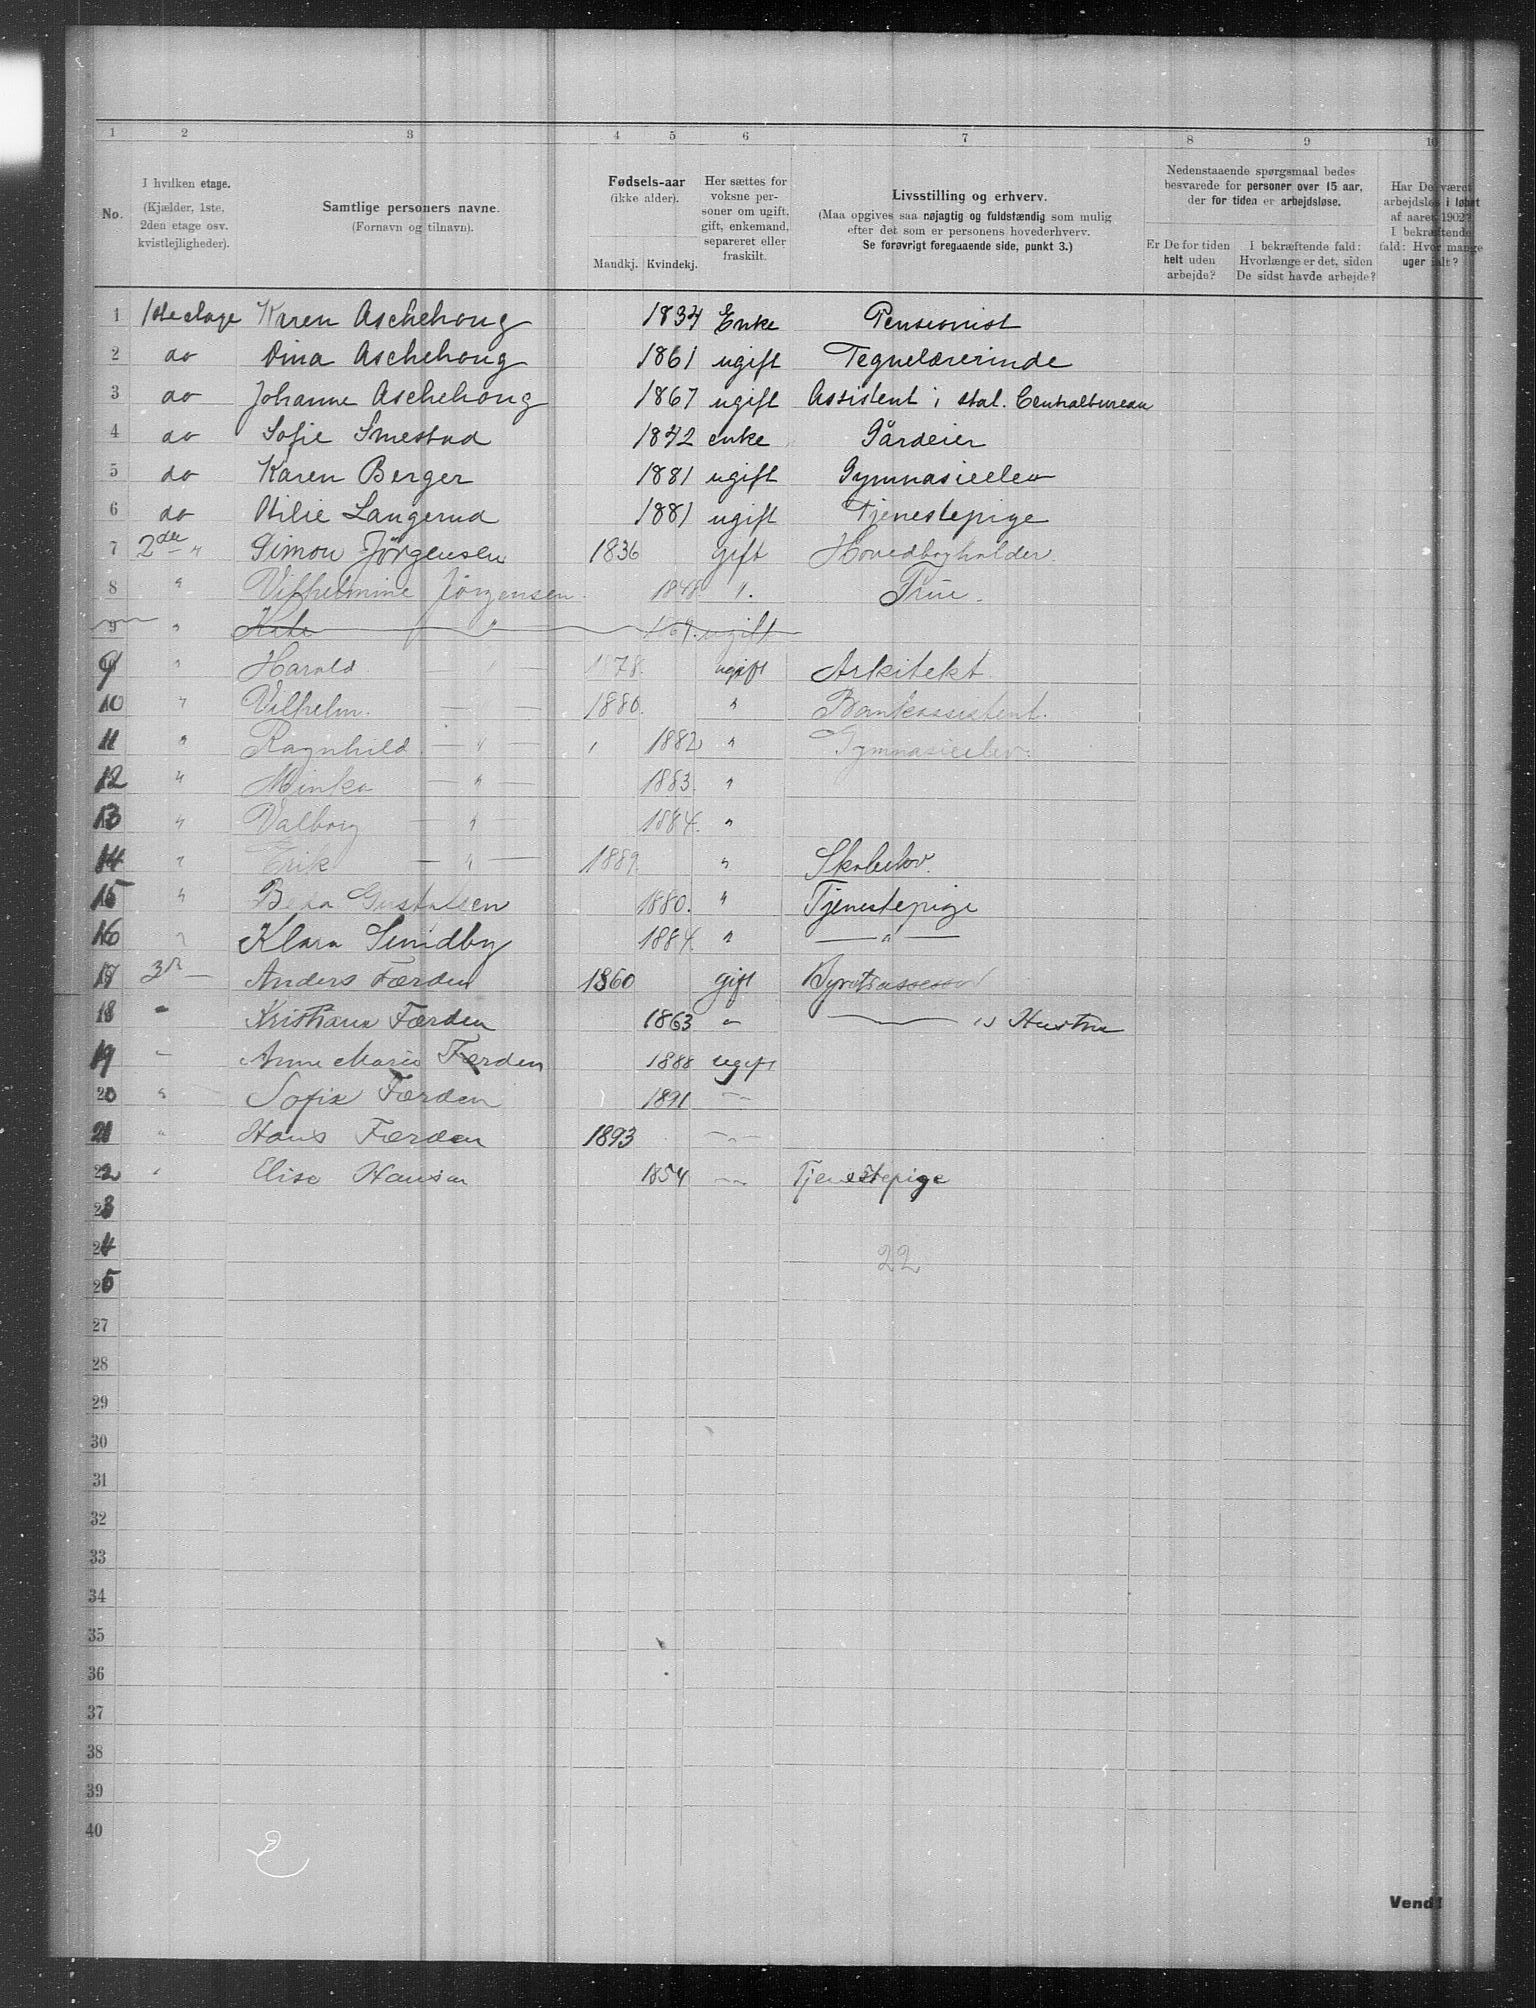 1 2 3 4 5 6 7 8 9 10
No.
I hvilken etage.
(Kjælder, 1ste,
2den etage osv.
kvistlejligheder).
Samtlige personers navne.
(Fornavn og tilnavn).
Fødsels-aar
(ikke alder).
Mandkj. Kvindekj.
Her sættes for
voksne per-
soner om ugift,
gift, enkemand,
separeret eller
fraskilt.
Livsstilling og erhverv.
(Maa opgives saa nøjagtig og fuldstændig som mulig
efter det som er personens hovederhverv.
Se forøvrigt foregaaende side, punkt 3.)
Nedenstaaende spørgsmaal bedes
besvarede for personer over 15 aar,
der for tiden er arbejdsløse.
Er De for tiden
helt uden
arbejde?
I bekræftende fald:
Hvorlænge er det, siden
De sidst havde arbejde?
Har De været
arbejdsløs i løbet
af aaret 1902?
I bekræftende
fald: Hvor mange
uger ialt?
1 1ste etage Karen Aschehoug 1834 Enke Pensionist
2 do Dina Aschehoug 1861 ugift Tegnelærerinde
3 do Johanne Aschehoug 1867 ugift Assistent i stat. Centralbureau
4 do Sofie Smestad 1842 enke Gårdeier
5 do Karen Berger 1881 ugift Gymnasieelev
6 do Langerud 1881 ugift Tjenestepige
7 2den " Simon Jörgensen 1836 gift Hovedbogholder
8 " Vilhelmine Jörgensen 1848 ". Frue.
9 " " ugift
9 " Harald — " — 1878. ugift Arkitekt.
10 " Vilhelm. — " — 1880. " Bankassistent.
11 " Ragnhild — " — 1882 " Gymnasieelev.
12 " Minka — " — 1883. "
13 " Valborg — " — 1884. "
14 " Erik — " — 1889. " Skoleelev.
15 " Gustafsen 1880. " Tjenestepige
16 " Klara Sundby 1884. " — " —
17 3die — Anders Færden 1860 gift Byretsassessor
18 " Kristiane Færden 1863 " — " — s Hustru
19 — Anne Marie Færden 1888 ugift
20 " Sofie Færden 1891 — " —
21 " Hans Færden 1893 — " —
22 " Elise Hansen 1854 — " — Tjenestepige
23
24 22
25
27
28
29
30
31
32
33
34
35
36
37
38
39
40
Vend!